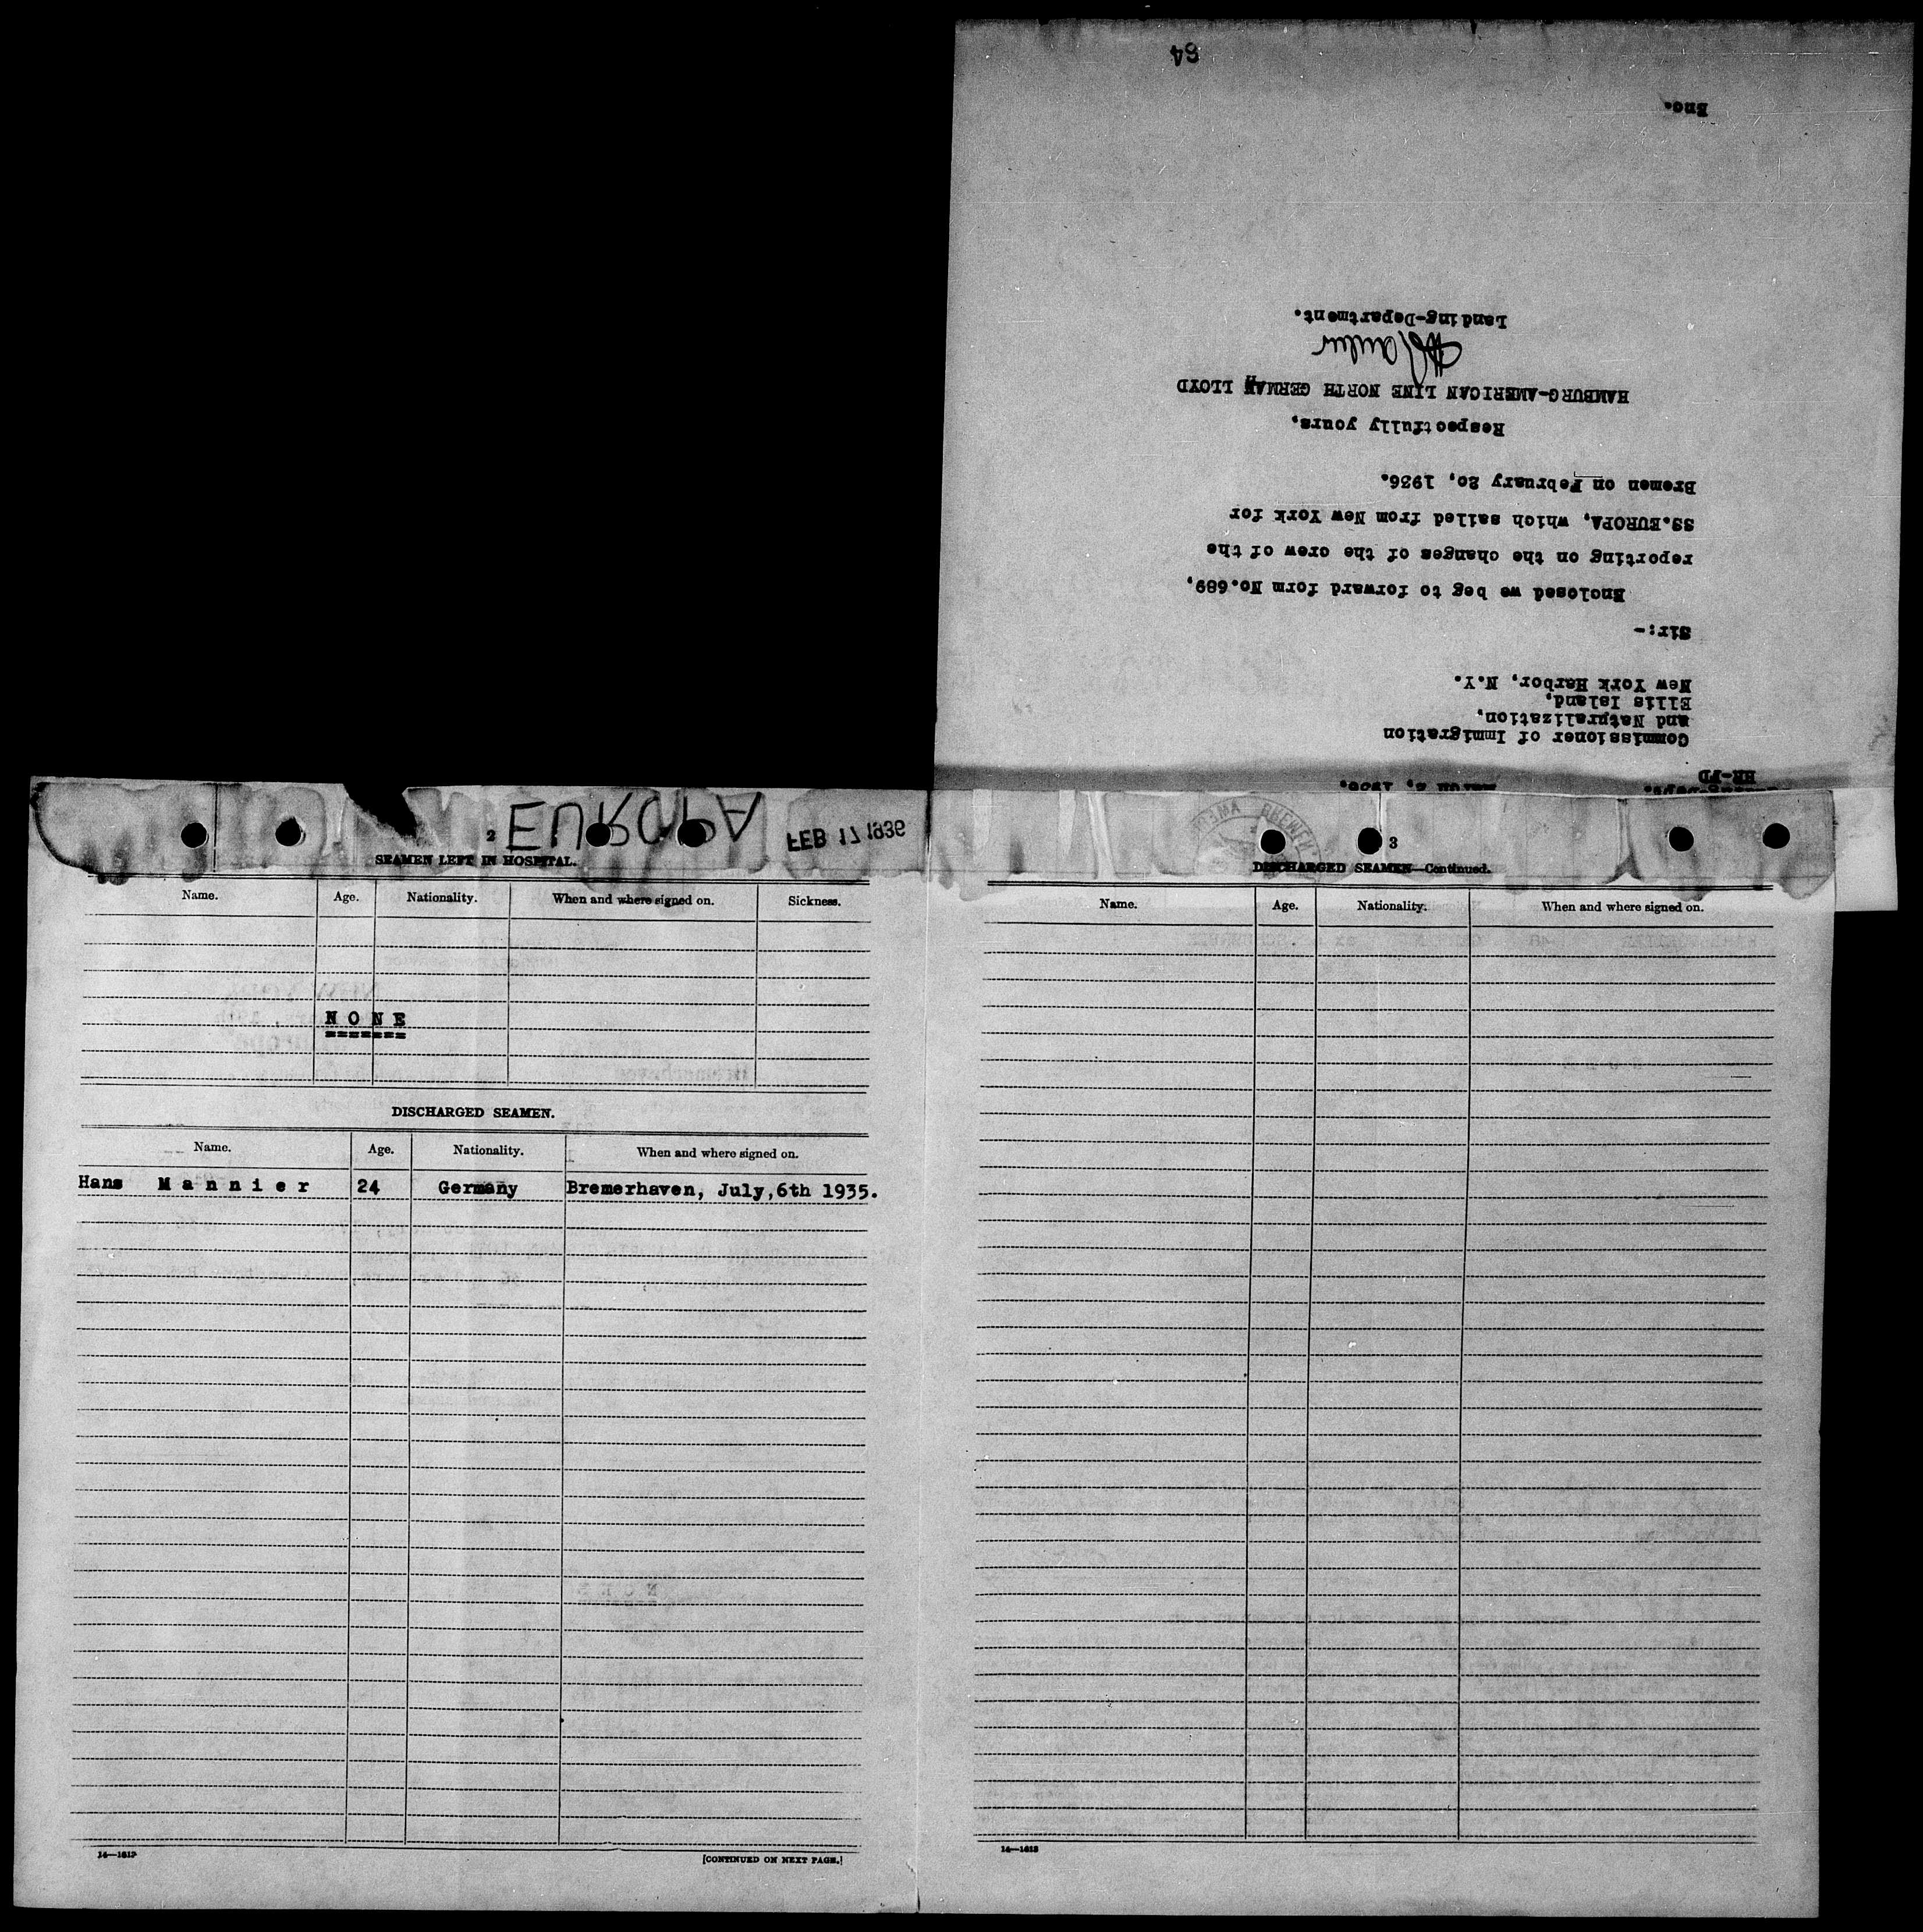 HR-FD
Commissioner of Immigration
and Naturalization,
Ellis Island,
New York Harbor, N.Y.
Sir:-
Enclosed we beg to forward form No.689,
reporting on the changes of the crew of the
SS.EUROPA, which sailed from New York for
Bremen on February 20, 1936.
Respectfully yours,
HAMBURG-AMERICAN LINE NORTH GERMAN LLOYD
Landing-Department.
Enc.
64
EUROPA
FEB 17 1936
2
SEAMEN LEFT IN HOSPITAL.
Name. Age. Nationality. When and where signed on. Sickness.
NONE
DISCHARGED SEAMEN.
Name. Age. Nationality. When and where signed on.
Hans Mannier 24 Germany Bremerhaven, July,6th 1935.
14—1613
[CONTINUED ON NEXT PAGE.]
3
DISCHARGED SEAMEN—Continued.
Name. Age. Nationality. When and where signed on.
14—1613